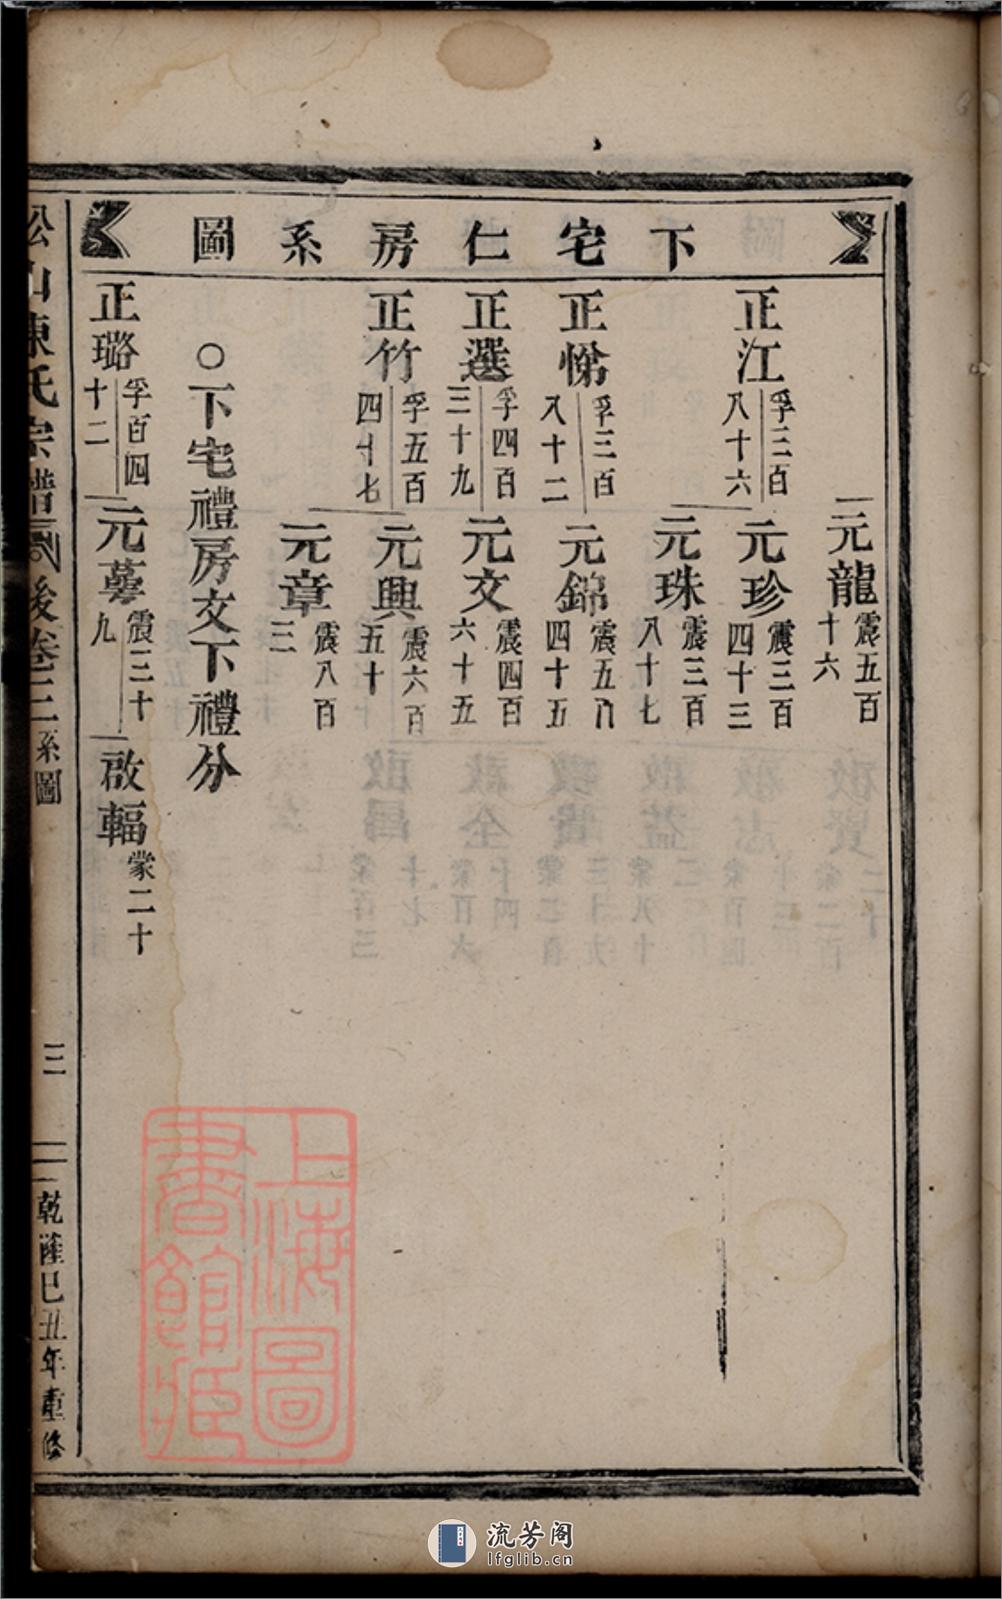 下宅仁房系圖
元龍 震五百十六
正江 孚三百八十六
元珍 震三百四十三
元珠 震三百八十七
正悌 孚三百八十二
元錦 震五百四十五
正選 孚四百三十九
元文 震四百六十五
正竹 孚五百四十七
元興 震六百五十
元章 震八百三
○下宅禮房文下禮分
正璐 孚百四十二
元蕚 震三十九
啟輻 蒙二十
松山陳氏宗譜
後卷三系圖
三
乾隆己丑年重修
上海圖書館藏
流芳阁
lfglib.cn